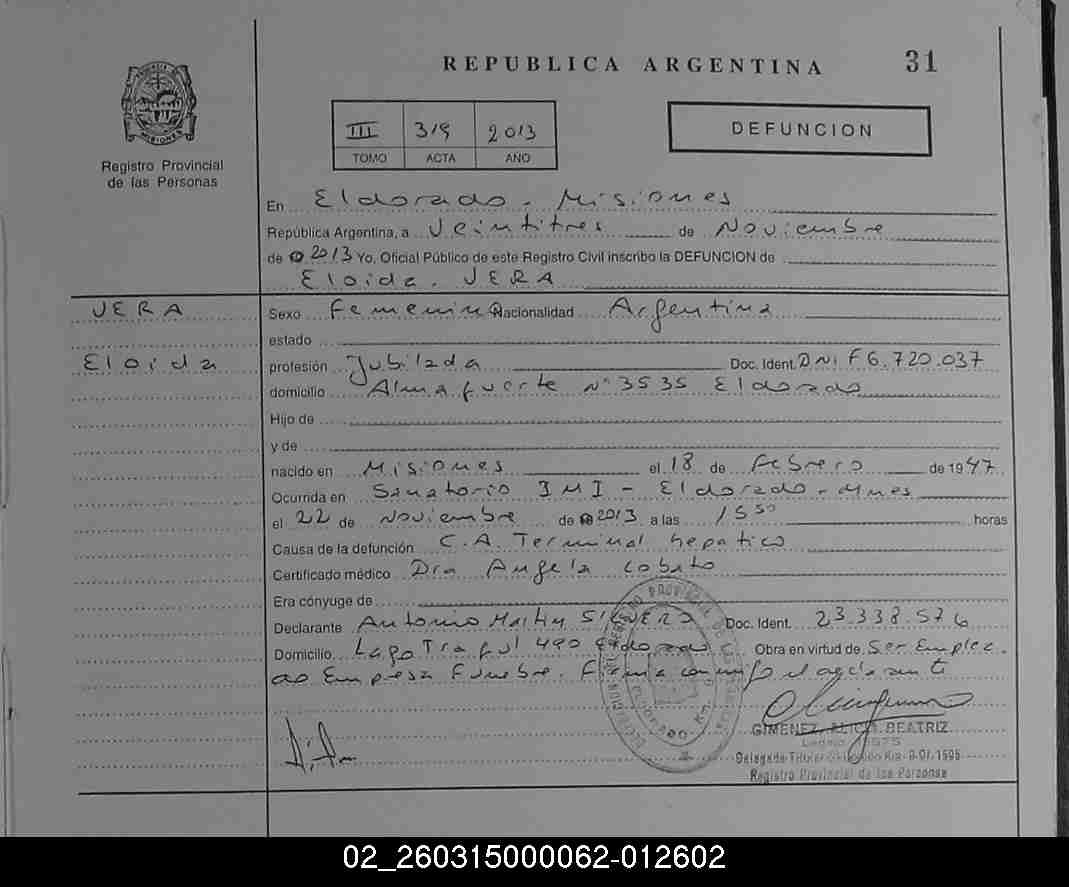 REPUBLICA ARGENTINA
31
PROVINCIA DE
MISIONES
Registro Provincial
de las Personas
III 319 2013
TOMO ACTA AÑO
DEFUNCION
En Eldorado. Misiones
República Argentina, a Veintitres de Noviembre
de 2013 Yo, Oficial Público de este Registro Civil inscribo la DEFUNCION de
Eloida. VERA
VERA
Eloida
Sexo Femenino Nacionalidad Argentina
estado
profesión Jubilada Doc. Ident. DNI F6.720.037
domicilio Almafuerte N° 3535 Eldorado
Hijo de
y de
nacido en Misiones el 18 de Febrero de 1947
Ocurrida en Sanatorio IMI - Eldorado - Mnes
el 22 de Noviembre de 2013 a las 15 50 horas
Causa de la defunción C.A Terminal hepatico
Certificado médico Dra Angela Lobato
Era cónyuge de
Declarante Antonio Martin Doc. Ident. 23.338.576
Domicilio Lago Traful 490 Eldorado Obra en virtud de Ser Emplea
do Empresa Funebre. Firma conmigo el
GIMENEZ, ALICIA BEATRIZ
Registro Provincial de las Personas
02_260315000062-012602